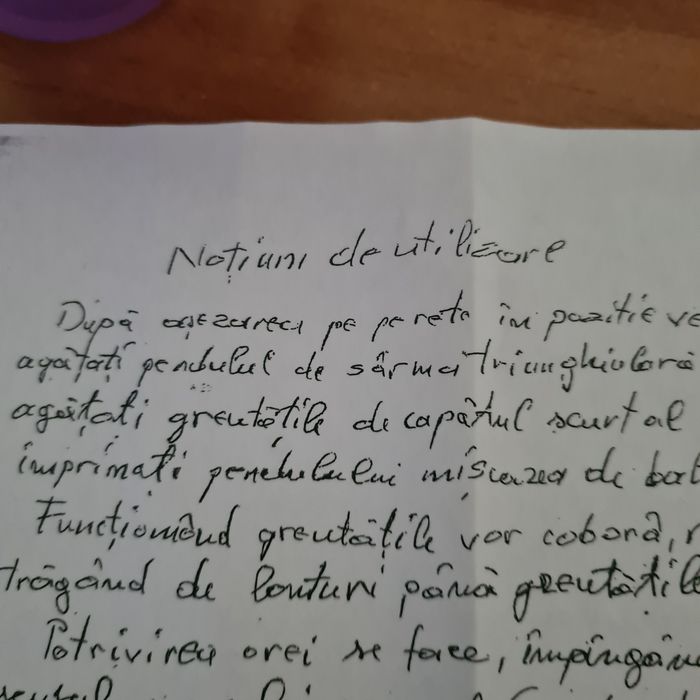 Noțiuni de utilizare
După așezarea pe perete în poziție ve
agățați pendulul de sârma triunghiulară
agățați greutățile de capătul scurt al
imprimați pendulului mișcarea de bat
Funcționând greutățile vor coborâ, r
trăgând de lanțuri până greutățile
Potrivirea orei se face, împingân